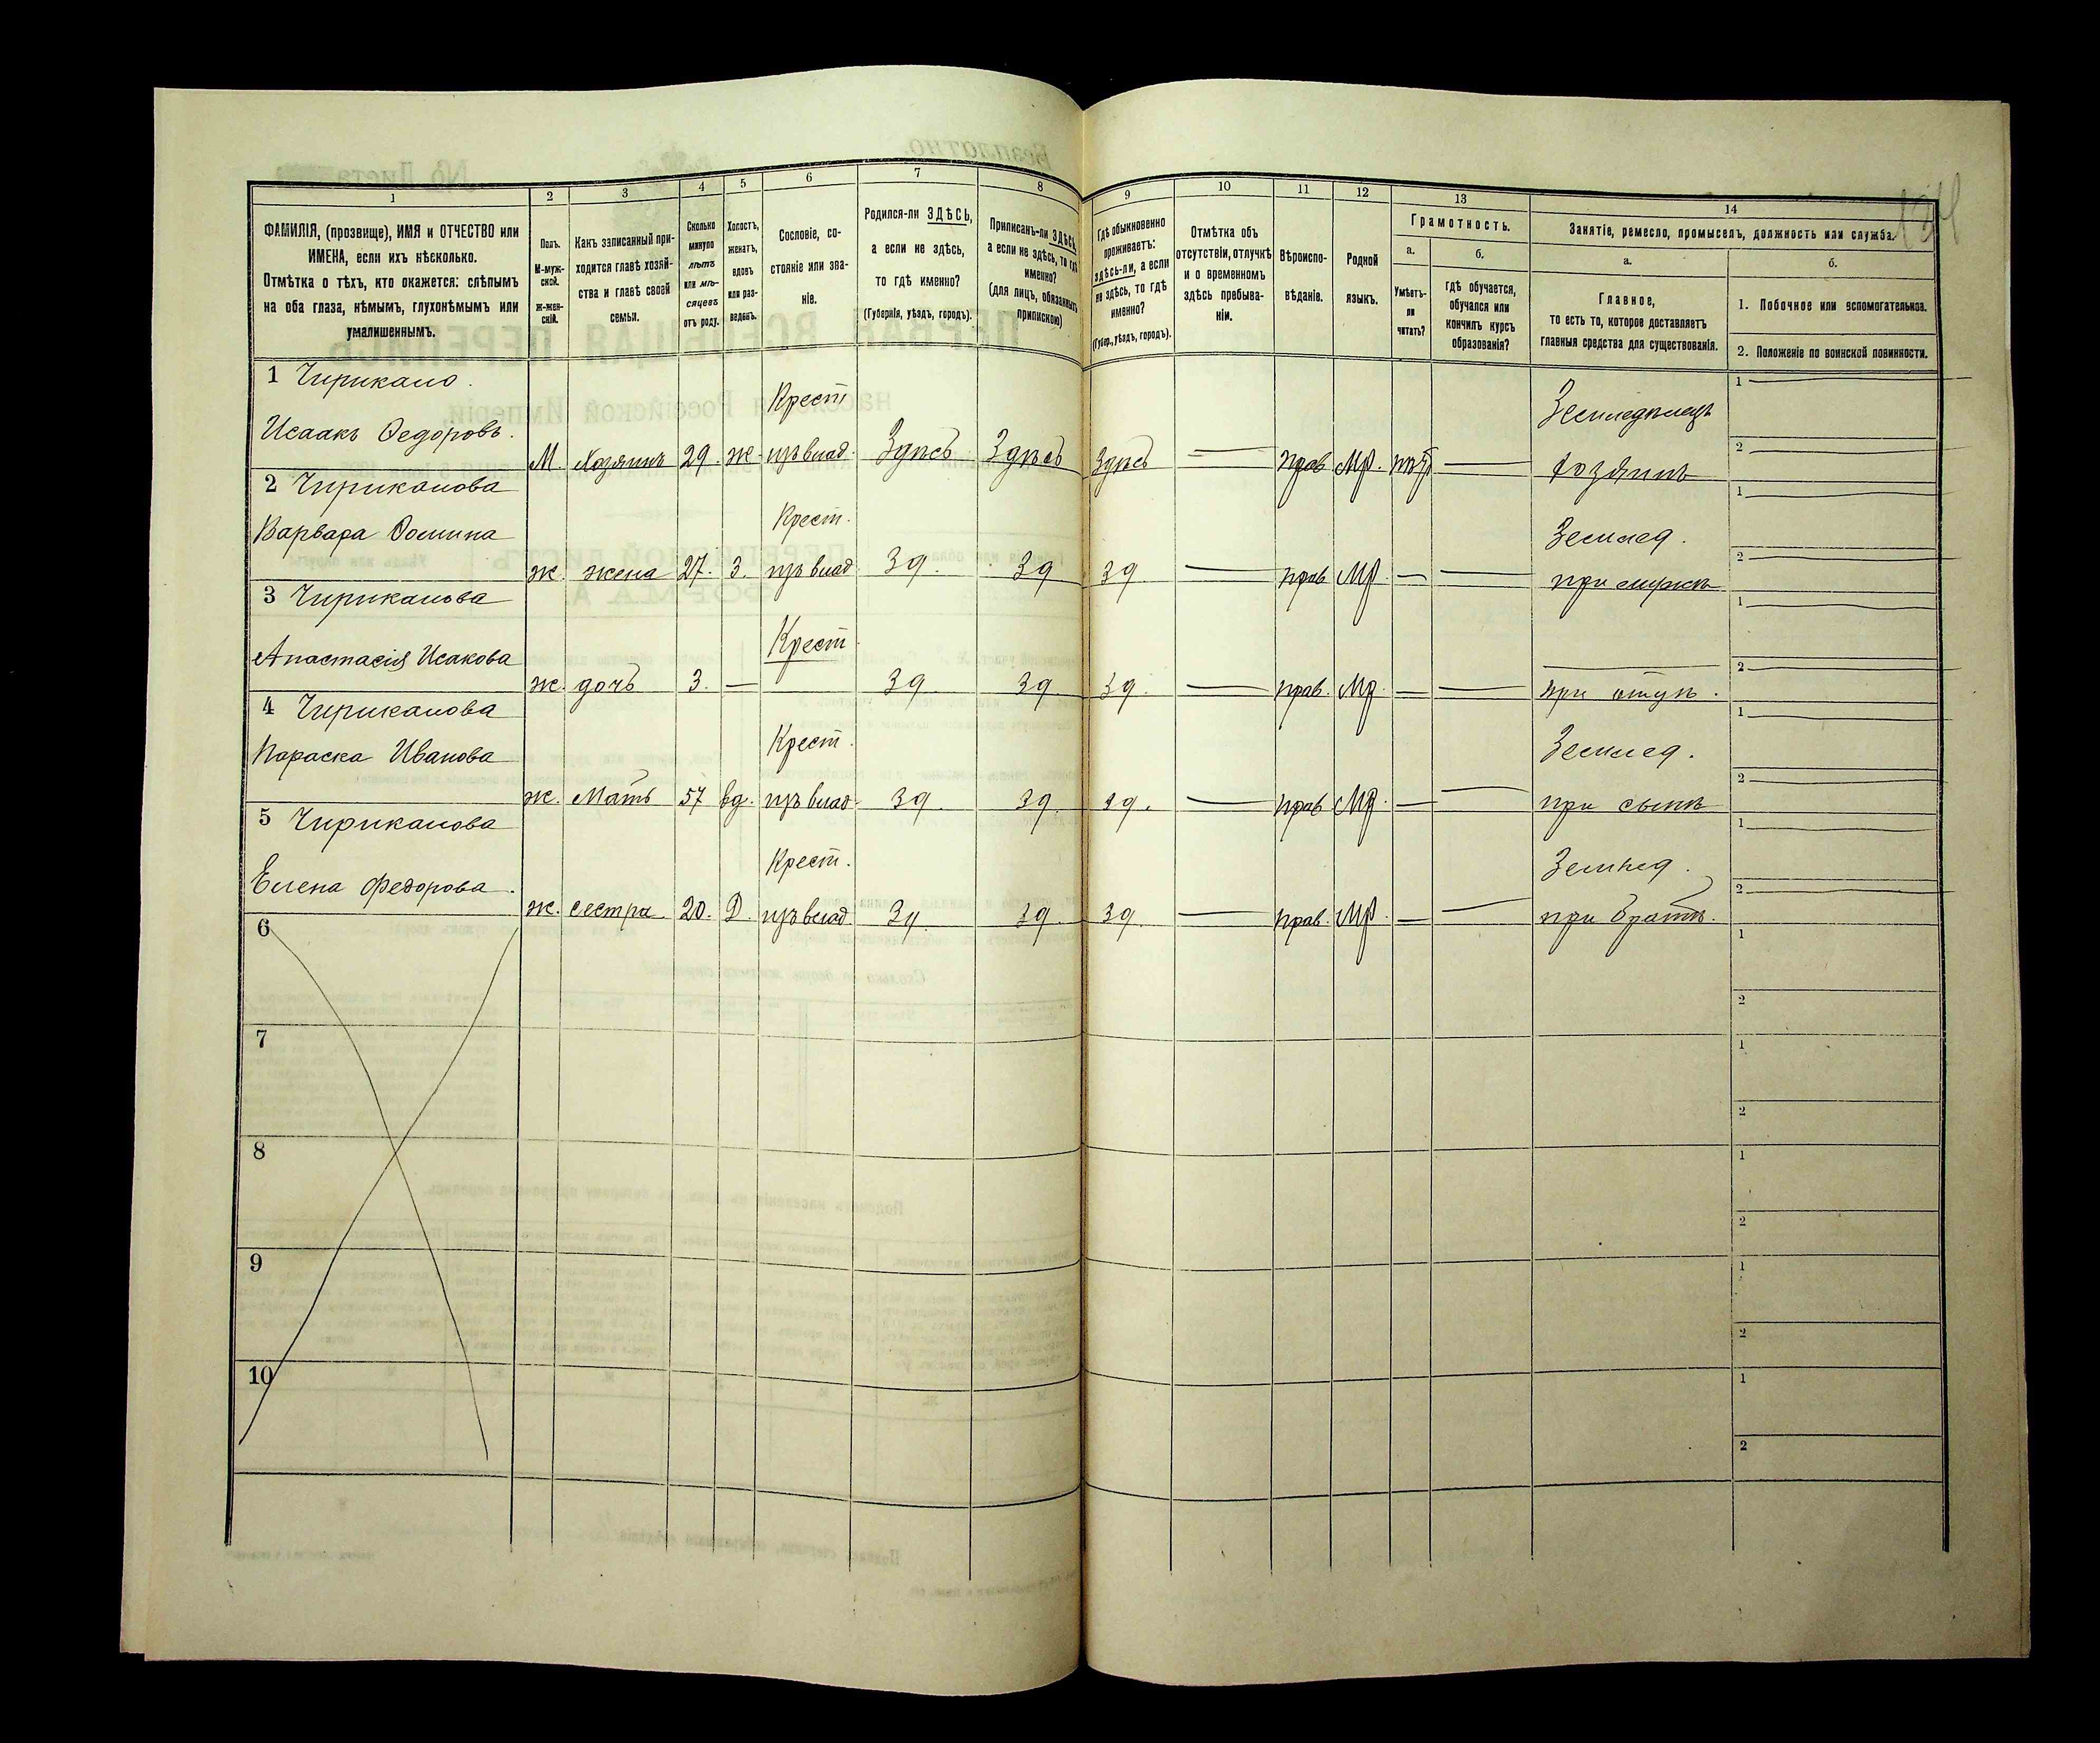 1 2 3 4 5 6 7 8 9 10 11 12 13 14
ФАМИЛІЯ, (прозвище), ИМЯ и ОТЧЕСТВО или
ИМЕНА, если ихъ нѣсколько.
Отмѣтка о тѣхъ, кто окажется: слѣпымъ
на оба глаза, нѣмымъ, глухонѣмымъ или
умалишеннымъ.
Полъ.
М-муж-
ской.
Ж-жен-
скій.
Какъ записанный при-
ходится главѣ хозяй-
ства и главѣ своей
семьи.
Сколько
минуло
лѣтъ
или мѣ-
сяцевъ
отъ роду.
Холостъ,
женатъ,
вдовъ
или раз-
веденъ.
Сословіе, со-
стояніе или зва-
ніе.
Родился-ли ЗДѢСЬ,
а если не здѣсь,
то гдѣ именно?
(Губернія, уѣздъ, городъ).
Приписанъ-ли ЗДѢСЬ,
а если не здѣсь, то гдѣ
именно?
(для лицъ, обязанныхъ
припискою)
Гдѣ обыкновенно
проживаетъ:
здѣсь-ли, а если
не здѣсь, то гдѣ
именно?
(Губер., уѣздъ, городъ).
Отмѣтка объ
отсутствіи, отлучкѣ
и о временномъ
здѣсь пребыва-
ніи.
Вѣроиспо-
вѣданіе.
Родной
языкъ.
Грамотность.
а.
Умѣетъ-
ли
читать?
б.
гдѣ обучается,
обучался или
кончилъ курсъ
образованія?
Занятіе, ремесло, промыселъ, должность или служба.
а.
Главное,
то есть то, которое доставляетъ
главныя средства для существованія.
б.
1. Побочное или вспомогательное.
2. Положеніе по воинской повинности.
1
Исаакъ Ѳедоровъ.
М. Хозяинъ 29. Ж.
Крест
Здѣсь Здѣсь Здѣсь — прав. Мр. нѣт —
Земледѣлецъ
хозяинъ
1
2
2 Чириканова
Варвара Ѳомина
ж. жена 27. З.
Крест.
Зд. Зд Зд — прав Мр. — —
Землед.
1
2
3 Чириканова
Анастасія Исакова
ж. дочь 3. —
Крест
Зд Зд. Зд. — прав. Мр. — —
при отцѣ.
1
2
4 Чириканова
Параска Иванова
ж. Мать 57 вд.
Крест.
Зд. Зд. Зд. — прав Мр. — —
Землед.
при сынѣ
1
2
5 Чириканова
Елена Федорова.
ж. сестра 20. Д.
Крест.
Зд. Зд. Зд. — прав. Мр. — —
Землед.
при братѣ.
1
2
6
1
2
7
1
2
8
1
2
9
1
2
10
1
2